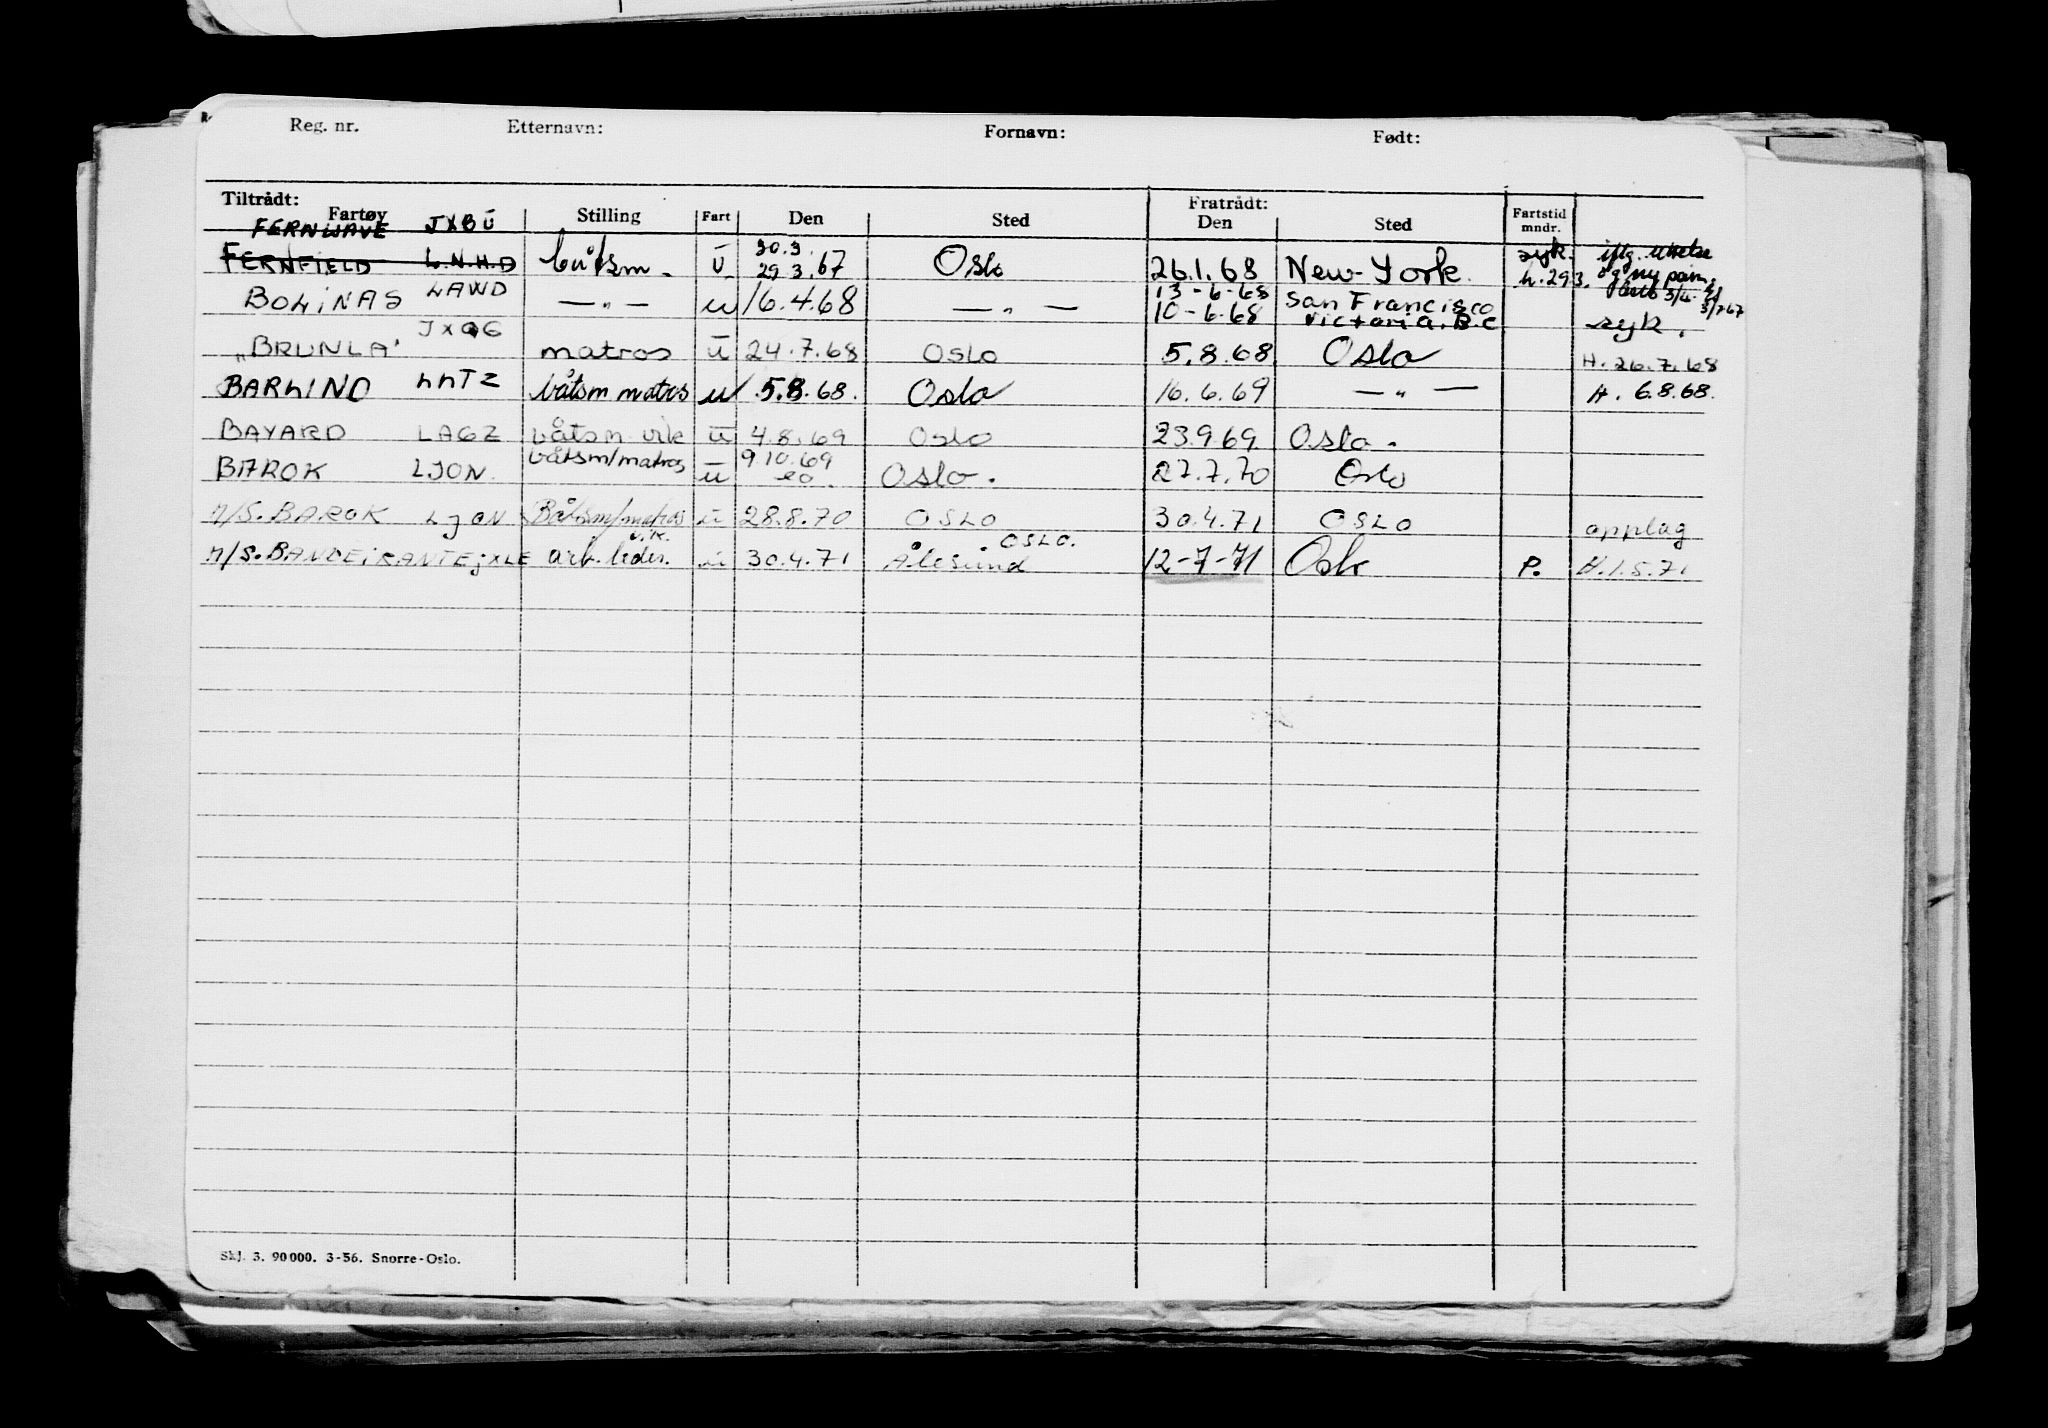 Reg. nr. Etternavn: Fornavn: Født:
Tiltrådt: Fratrådt:
Fartøy Stilling Fart Den Sted Den Sted Fartstid mndr.
FERNWAVE JXBU 30.3. syk. iflg. uttelse
FERNFIELD L.N.H.D båtsm. U 29.3.67 Oslo 26.1.68 New-York. h. 29.3. og ny påm.
BOLINAS LAWD — " — u 16.4.68 — " — 13-6-68 San Francisco
10-6-68 Victoria. B.C syk.
"BRUNLA" JXQG matros u 24.7.68 OSLO 5.8.68 Oslo H. 26.7.68
BARLIND LLTZ båtsm matros u 5.8.68. Oslo 16.6.69 — " — H. 6.8.68.
BAYARD LAGZ båtsm. vik u 4.8.69 Oslo 23.9.69 Oslo.
BAROK LJON. båtsm/matros u 9.10.69 Oslo. 27.7.70 Oslo
M/S. BAROK LJON Båtsm/matros u 28.8.70 OSLO 30.4.71 OSLO opplag
v.k. OSLO.
M/S. BANDEIRANTE jXLE arb. leder. u 30.4.71 Ålesund 12-7-71 Oslo P. H. 1.5.71
Skj. 3. 90000. 3-56. Snorre-Oslo.